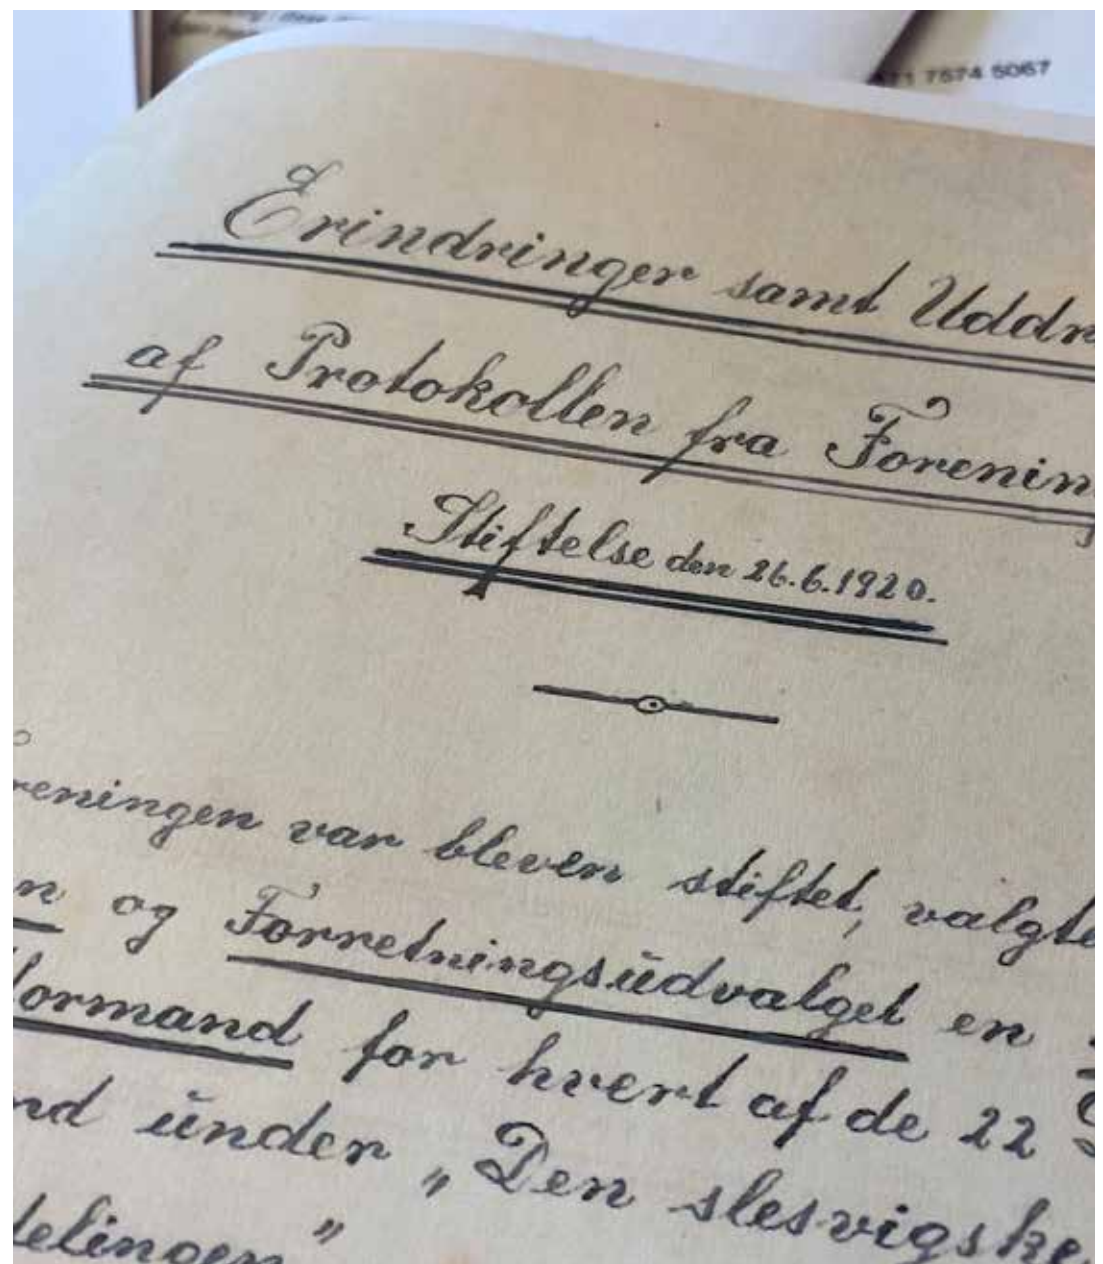 71 7574 5067
Erindringer samt Uddr
af Protokollen fra Forening
Stiftelse den 26.6.1920.
reningen var bleven stiftet, valgte
n og Forretningsüdvalget en
formand for hvert af de 22
nd ünder „Den slesvigske
delingen"